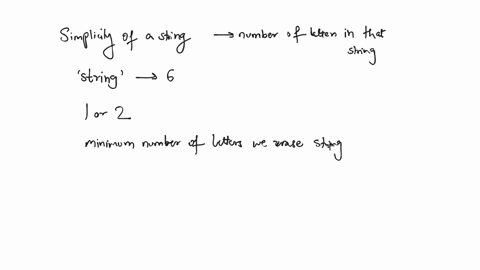 Simplicity of a string → number of letters in that
string
'string' → 6
1 or 2
minimum number of letters we erase string